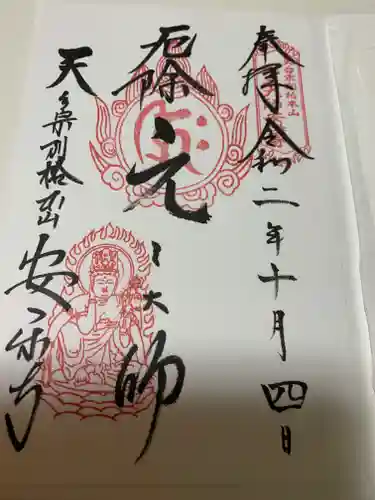 奉拝 令和二年十月四日
厄除 元三大師
天台宗別格本山 安楽寺